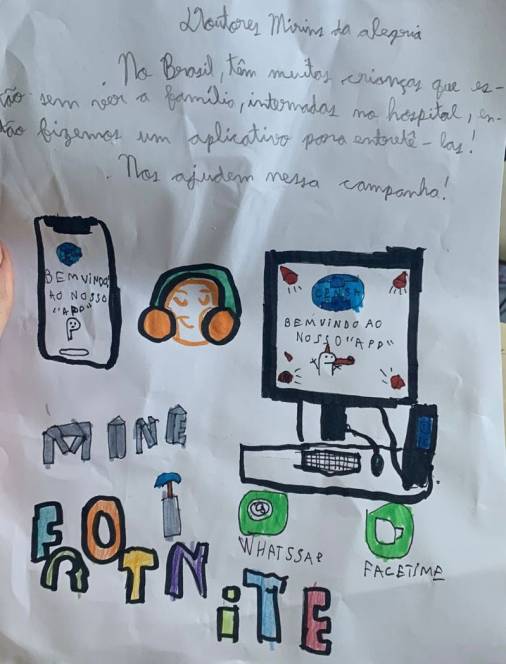 Doutores Mirins da alegria
No Brasil, têm muitas crianças que es-
tão sem ver a família, internadas no hospital, en-
tão fizemos um aplicativo para entretê-las!
Nos ajudem nessa campanha!
BEMVINDO
AO NOSSO
"APP"
BEMVINDO AO
NOSSO "APP"
MINE
FORTNITE
WHATSSAP
FACETIME